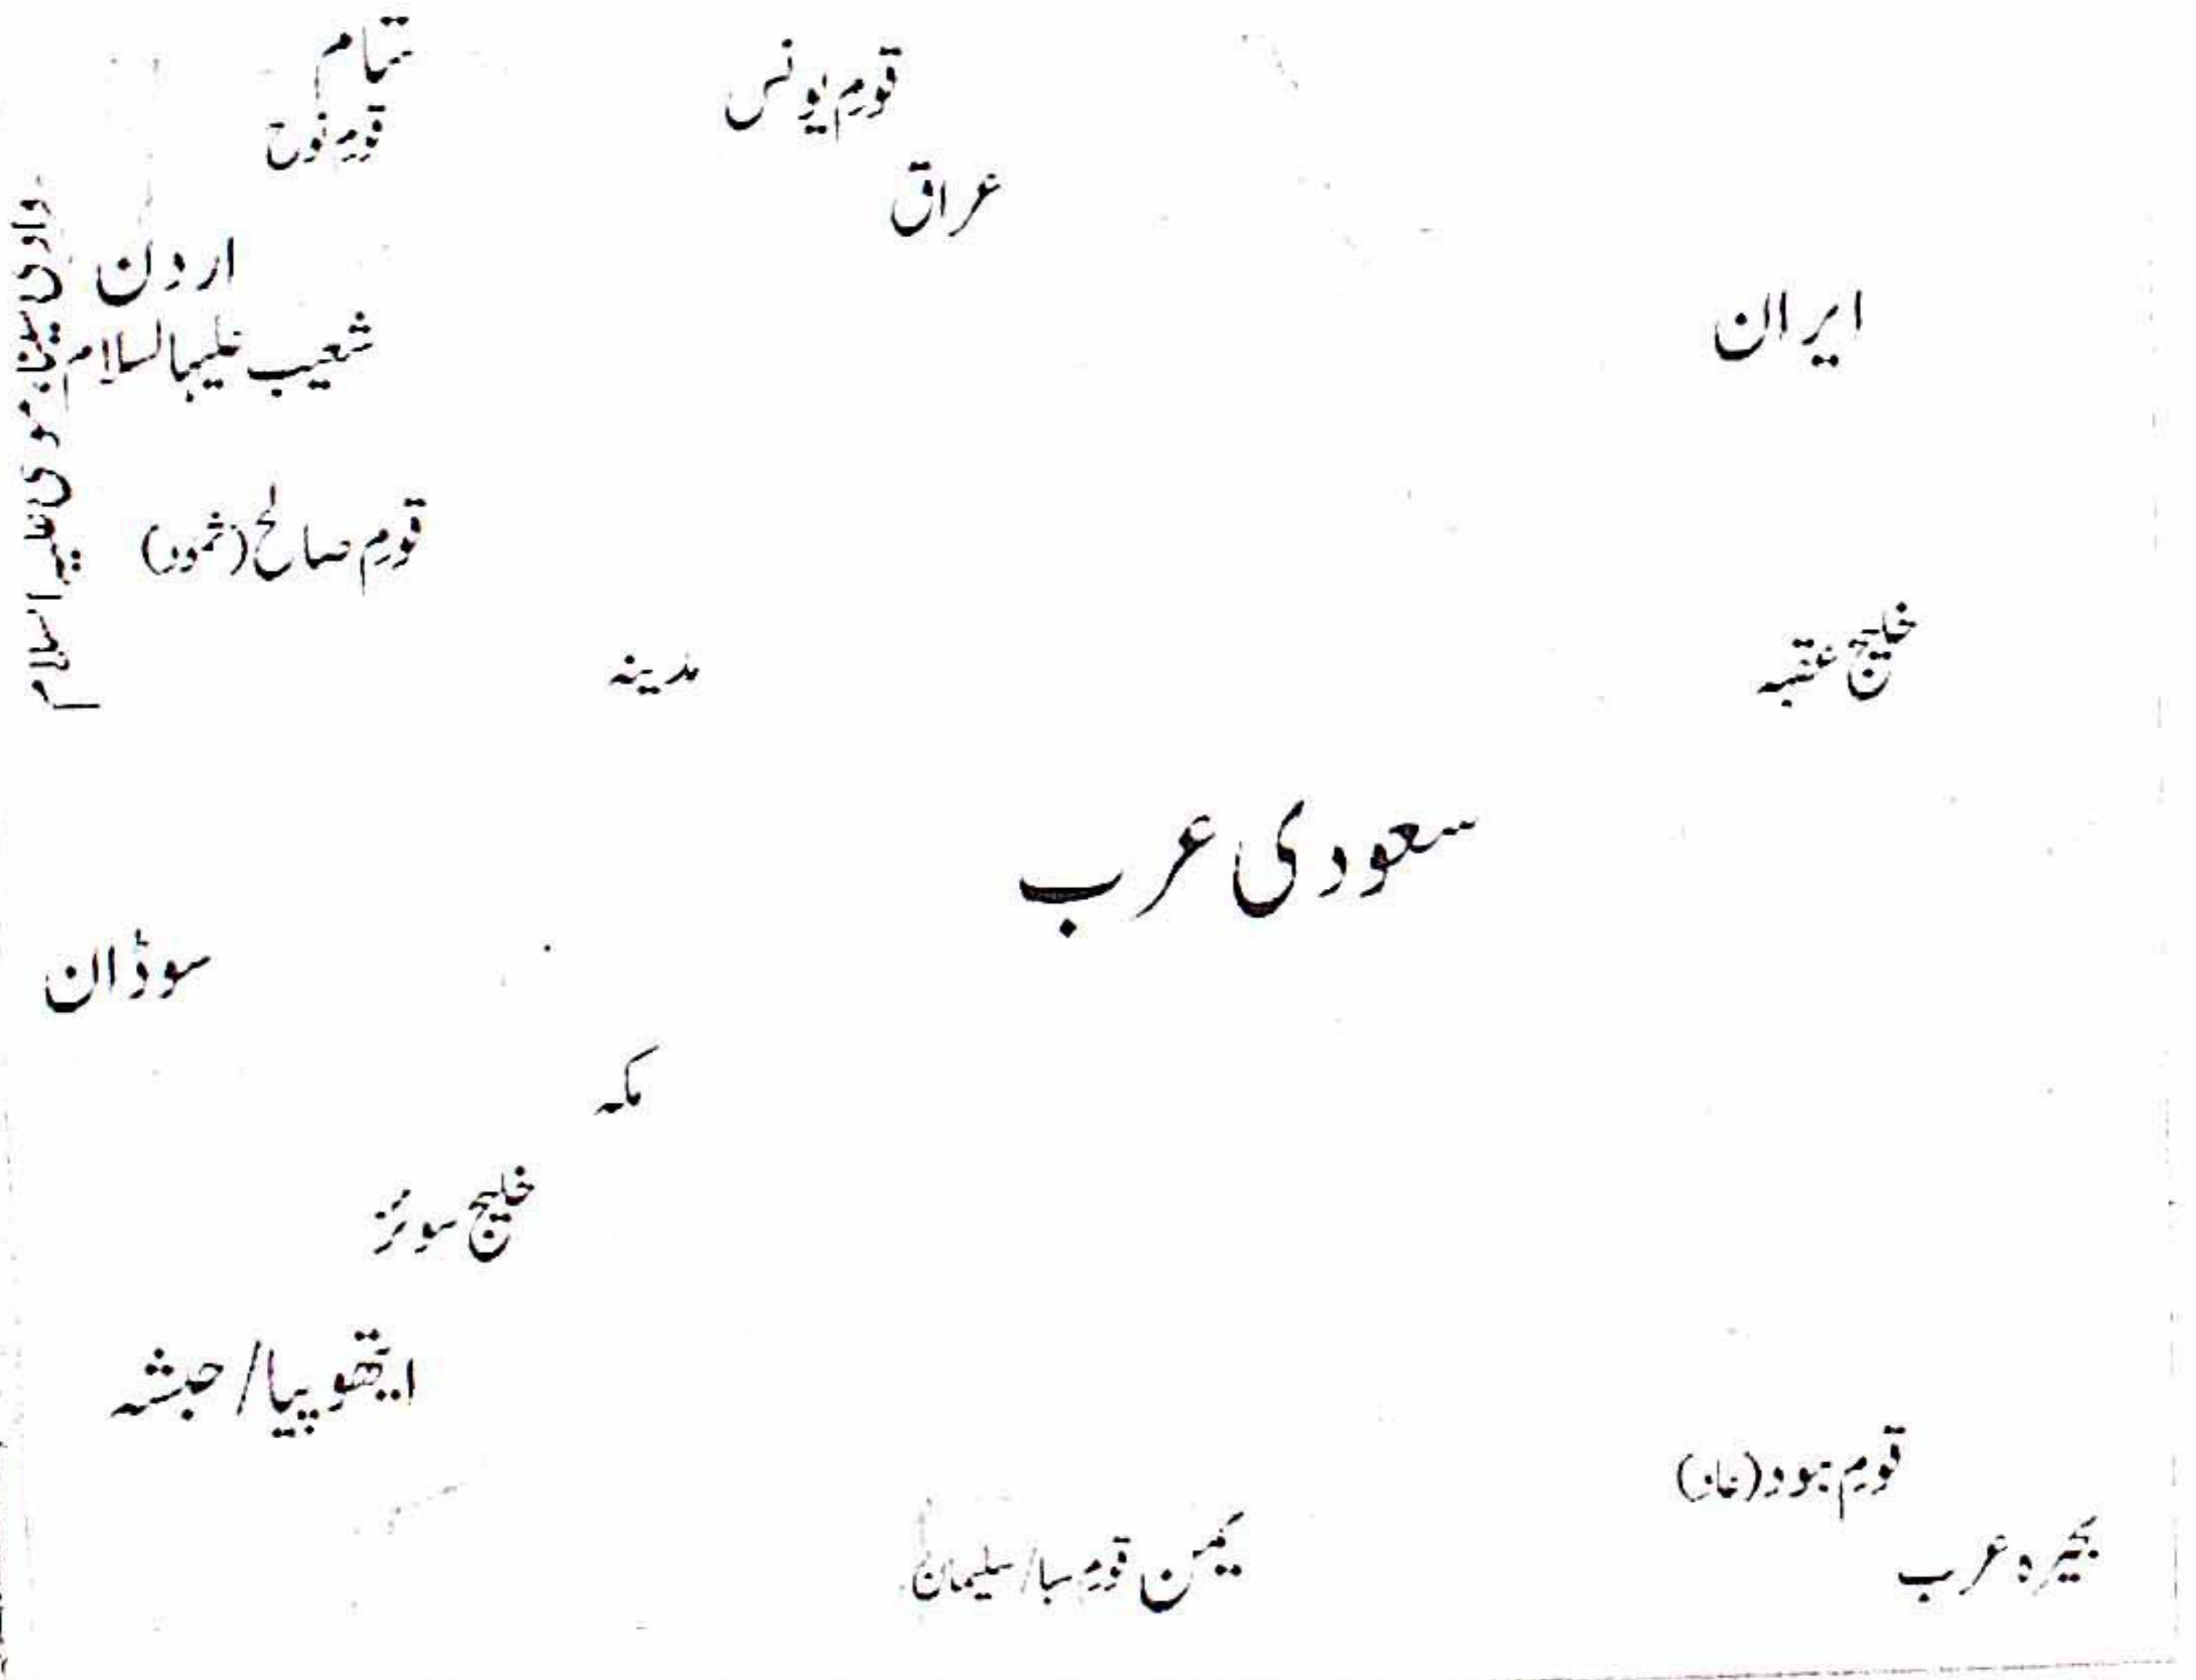 شام
قومِ نوح
قومِ یونس
عراق
اردن
شعیب علیہالسلام
ایران
وادی سینا موسی علیہ اسلام
قومِ صالح (ثمود)
مدینہ
خلیج عقبہ
سعودی عرب
سوڈان
مکہ
خلیج سوئز
ایتھوپیا/حبشہ
قومِ ہود (عاد)
یمن قومِ سبا/سلیمان
بحیرہ عرب